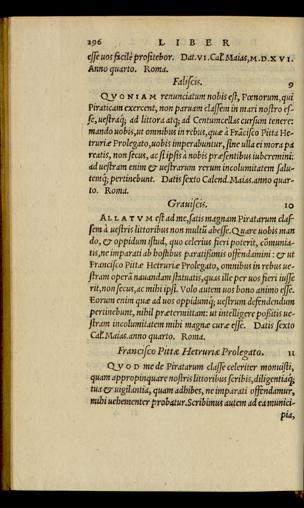 296 LIBER
esse uos facilè profitebor. Dat. VI. Cal. Maias, M. D. XVI.
Anno quarto. Roma.
Faliscis. 9
QVONIAM renunciatum nobis est, Pœnorum, qui
Piraticam exercent, non paruam classem in mari nostro es-
se, uestraq́; ad littora atq; ad Centumcellas cursum tenere:
mando uobis, ut omnibus in rebus, quæ à Frãcisco Pitta He-
truriæ Prolegato, uobis imperabuntur, sine ulla ei mora pa
reatis, non secus, ac si ipsis à nobis præsentibus iuberemini:
ad uestram enim & uestrarum rerum incolumitatem salu-
temq́; pertinebunt. Datis sexto Calend. Maias. anno quar-
to. Roma.
Grauiscis. 10
ALLATVM est ad me, satis magnam Piratarum clas-
sem à uestris littoribus non multũ abesse. Quare uobis man
do, & oppidum istud, quo celerius fieri poterit, cõmunia-
tis, ne imparati ab hostibus paratißimis offendamini: & ut
Francisco Pittæ Hetruriæ Prolegato, omnibus in rebus ue-
stram operã nauandam statuatis, quas ille per uos fieri iusse
rit, non secus, ac mihi ipsi. Volo autem uos bono animo esse.
Eorum enim quæ ad uos oppidumq́; uestrum defendendum
pertinebunt, nihil prætermittam: ut intelligere poßitis ue-
stram incolumitatem mihi magnæ curæ esse. Datis sexto
Cal. Maias. anno quarto. Roma.
Francisco Pittæ Hetruriæ Prolegato. 11
QVOD me de Piratarum classe celeriter monuisti,
quam appropinquare nostris littoribus scribis, diligentiaq́;
tua & uigilantia, quam adhibes, ne imparati offendamur,
mihi uehementer probatur. Scribimus autem ad ea munici-
pia,